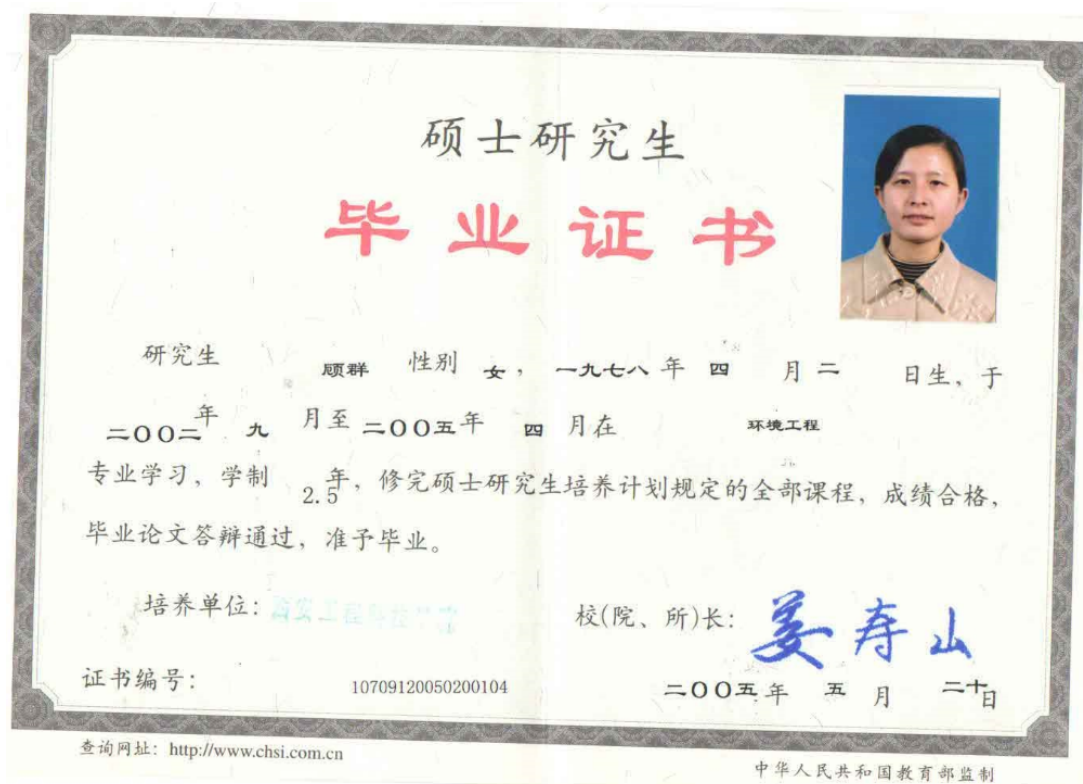 硕士研究生
毕业证书
研究生 顾群 性别 女，一九七八年 四 月 二 日生，于
二〇〇二年 九 月至 二〇〇五年 四 月在 环境工程
专业学习，学制 2.5年，修完硕士研究生培养计划规定的全部课程，成绩合格，
毕业论文答辩通过，准予毕业。
培养单位：西安工程科技学院
校(院、所)长：姜寿山
证书编号： 10709120050200104
二〇〇五年 五 月 二十日
查询网址：http://www.chsi.com.cn
中华人民共和国教育部监制